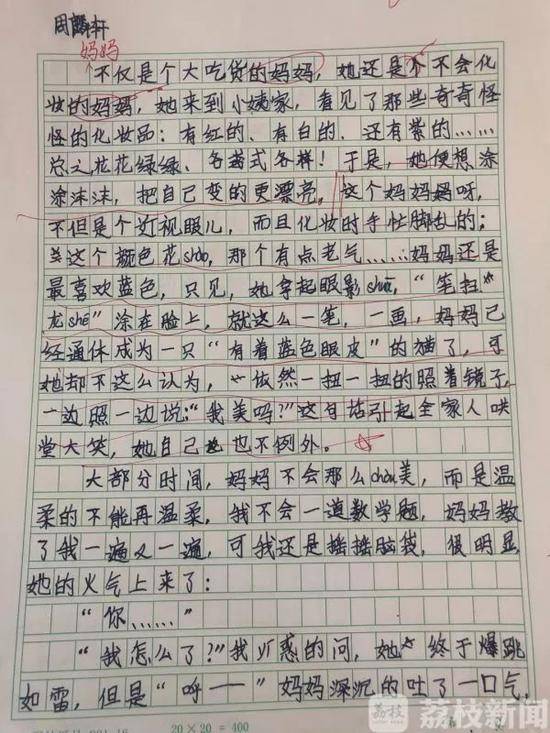 周麟轩
妈妈
不仅是个大吃货的妈妈，她还是个不会化
妆的妈妈，她来到小姨家，看见了那些奇奇怪
怪的化妆品：有红的、有白的、还有紫的……
总之花花绿绿、各式各样！于是，她便想涂
涂沫沫，把自己变的更漂亮。这个妈妈呀，
不但是个近视眼儿，而且化妆时手忙脚乱的；
这个颜色花shào，那个有点老气……妈妈还是
最喜欢蓝色，只见，她拿起眼影shuā，“笔
龙shé”涂在脸上，就这么一笔，一画，妈妈已
经通体成为一只“有着蓝色眼皮”的猫了，可
她却不这么认为，依然一扭一扭的照着镜子，
一边照一边说：“我美吗？”这句话引起全家人哄
堂大笑，她自己也不例外。
大部分时间，妈妈不会那么chòu美，而是温
柔的不能再温柔，我不会一道数学题，妈妈教
了我一遍又一遍，可我还是摇摇脑袋，很明显
她的火气上来了：
“你……”
“我怎么了？”我惑的问，她终于爆跳
如雷，但是“呼——”妈妈深沉的吐了一口气，
20×20=400
荔枝
荔枝新闻